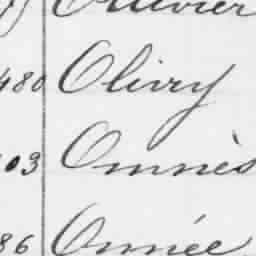 Ollivier
480 Olivry
03 Omnès
86 Onnée